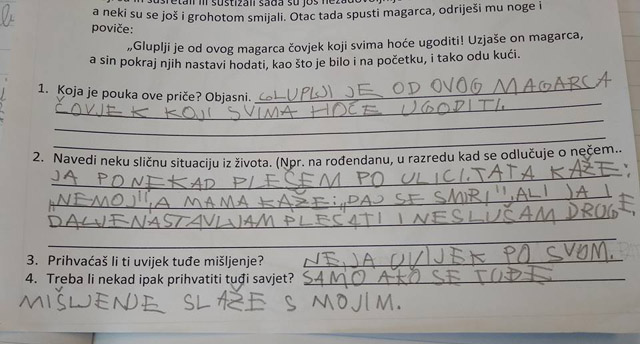 a neki su se još i grohotom smijali. Otac tada spusti magarca, odriješi mu noge i
poviče:
„Gluplji je od ovog magarca čovjek koji svima hoće ugoditi! Uzjaše on magarca,
a sin pokraj njih nastavi hodati, kao što je bilo i na početku, i tako odu kući.
1. Koja je pouka ove priče? Objasni. GLUPLJI JE OD OVOG MAGARCA
ČOVJEK KOJI SVIMA HOĆE UGODITI.
2. Navedi neku sličnu situaciju iz života. (Npr. na rođendanu, u razredu kad se odlučuje o nečem..
JA PONEKAD PLEČEM PO ULICI.TATA KAŽE:
„NEMOJ!"A MAMA KAŽE:„DAJ SE SMIRI"!ALI JA I
DALJENASTAVLJAM PLESATI I NESLUŠAM DROGE,
3. Prihvaćaš li ti uvijek tuđe mišljenje? NE,JA UVIJEK PO SVOM.
4. Treba li nekad ipak prihvatiti tuđi savjet? SAMO AKO SE TUĐE
MIŠLJENJE SLAŽE S MOJIM.